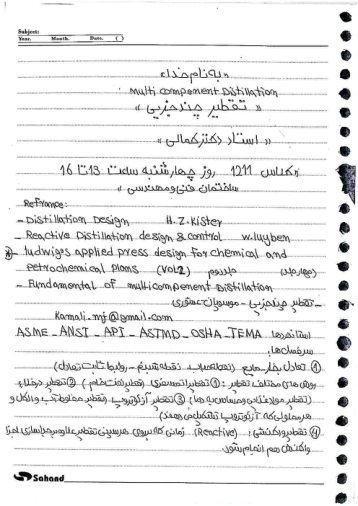 Subject:
Year. Month. Date. ( )
«به نام خدا»
Multi component Distillation
« تقطیر چند جزیی »
« استاد دکتر کمالی »
کلاس 1211 روز چهارشنبه ساعت 13 تا 16
ساختمان فنی و مهندسی
Refrance:
- Distillation Design H.Z.Kister
- Reactive Distillation design & control w.luyben
ludwigs applied press design for chemical and
petrochemical plans (Vol2) جلد دوم
- Fundamental of multicomponent Distillation
- تقطیر چند جزیی - موسویان
Kamali.mj@gmail.com
ASME _ ANSI _ API _ ASTMD _ OSHA _ TEMA استانداردها
سرفصل ها:
① تعادل بخار - مایع (نقطه حباب نقطه شبنم - روابط ثابت تعادل)
روش های مختلف تقطیر: ① تقطیر (تقطیر نفت خام) ② تقطیر در خلاء
(تقطیر مواد غذایی و حساس به دما) ③ تقطیر آزئوتروپ (تقطیر مخلوط آب و الکل و
هر محلولی که آزئوتروپ تشکیل می دهند)
④ تقطیر واکنشی: (Reactive) زمانی که بر روی سینی تقطیر علاوه بر جداسازی اجزا
واکنش هم انجام شود.
Sahand